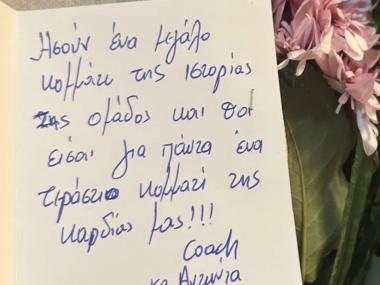 Ήσουν ένα μεγάλο
κομμάτι της ιστορίας
της ομάδος και θα
είσαι για πάντα ένα
τεράστιο κομμάτι της
καρδιάς μας!!!
Coach
κα Αντωνία